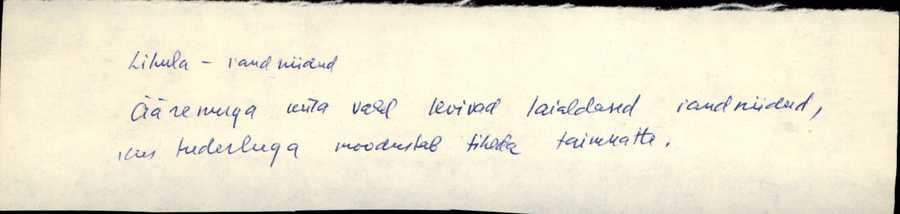 Lihula – rand niidud
levivad laialdased rand niidud,
kus tuderluga moodustab tiheda taimkatte.